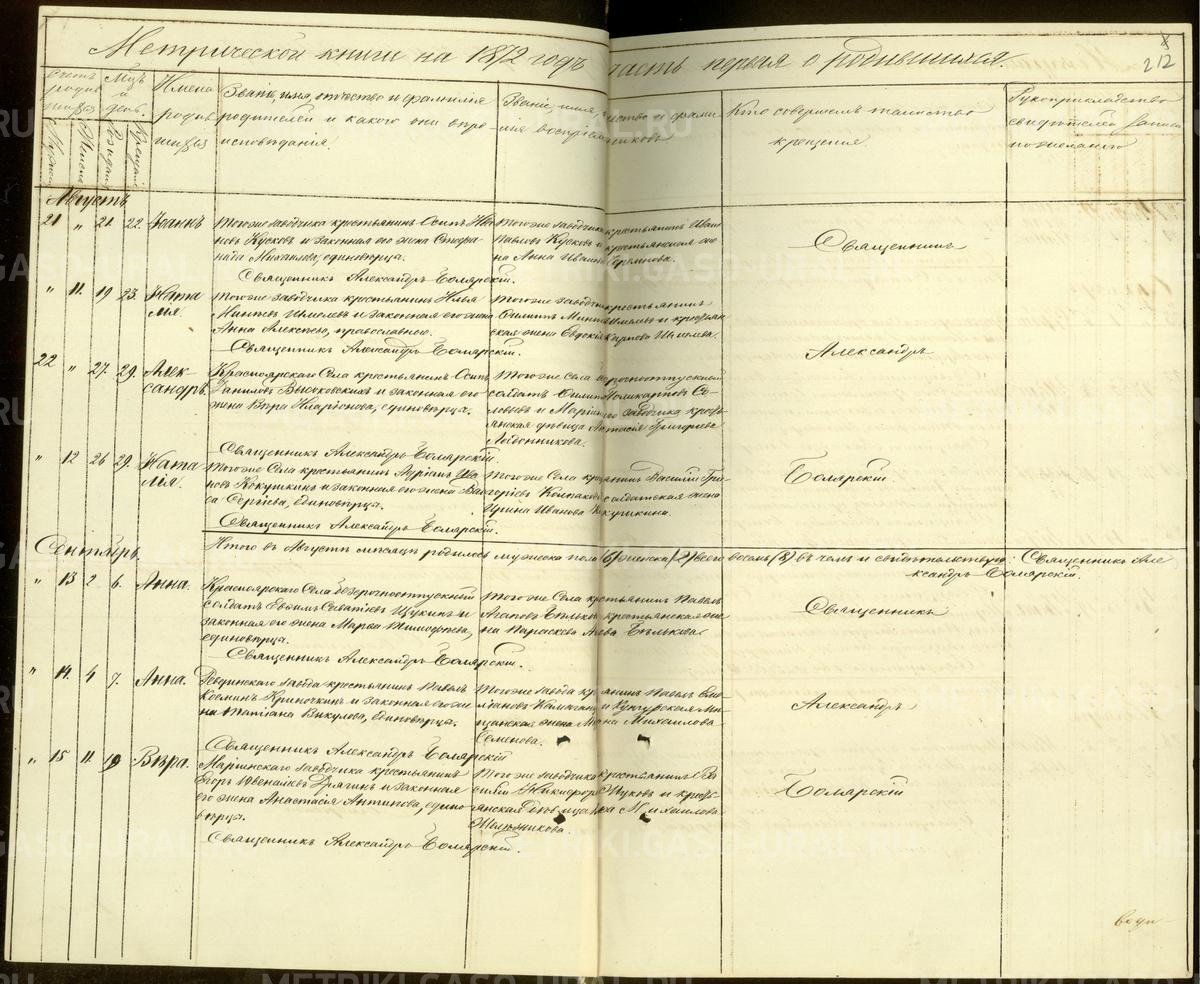 Метрической книги на 1872 годъ часть первая о родившихся.
212
Счетъ родив шихся
Мужеска
Женска
Мцъ и день.
Рожденія
Крещенія
Имена родив шихся
Званіе, имя, отчество и фамилія
родителей и какого они вѣро-
исповѣданія.
Званіе, имя, отчество и фами-
лія воспріемниковъ
Кто совершалъ таинство
крещенія.
Рукоприкладство
свидѣтелей записи
по желанію
Августъ
21 " 21. 22. Іоаннъ
Тогоже заводчика крестьянинъ Осипъ Ива
новъ Кусковъ и законная его жена Стефа-
нида Михаилова, единовѣрца.
Священникъ Александръ Болярскій.
Тогоже заводчика крестьянинъ Иванъ
Павловъ Кусковъ и крестьянская же
на Анна Иванова
Священникъ
" 11. 19 23. Ната
лія.
Тогоже заводчика крестьянинъ Илья
законная его жена
Анна Алексѣева, православные.
Священникъ Александръ Болярскій.
Тогоже заводчика крестьянинъ
Филиппъ и крестьян
ская жена Евдокія Карпова
Александръ
22 " 27. 29. Алек-
сандръ.
Красноярскаго Села крестьянинъ Осипъ
Даниловъ Высоковскихъ и законная его
жена Вѣра Иларіонова, единовѣрца.
Священникъ Александръ Болярскій.
Тогоже села безсрочноотпускной
солдатъ Филиппъ Поликарповъ Со-
ловьевъ и заводчика кресть-
янская дѣвица Григорьева
" 12 26 29. Ната
лія.
Тогоже Села крестьянинъ Ива
новъ Кокушкинъ и законная его жена
са Сергіева, единовѣрца.
Священникъ Александръ Болярскій.
Тогоже Села крестьянинъ Василій Гри-
горіевъ и солдатская жена
Ирина Иванова Кокушкина.
Болярскій
Итого въ Августѣ мѣсяцѣ родилось мужеска пола (6) женска (2) всего восемь (8) въ чемъ и свидѣтельствую: Священникъ Але
ксандръ Болярскій.
Сентябрь.
" 13 2 6. Анна.
Красноярскаго Села безсрочноотпускной
солдатъ Евѳимъ Саватіевъ Щукинъ и
законная его жена Марѳа Тимоѳеева,
единовѣрца.
Священникъ Александръ Болярскій.
Тогоже Села крестьянинъ Павелъ
Агаповъ Бѣльковъ крестьянская же
на Параскева Бѣлькова
Священникъ
" 14. 4 7. Анна.
Ревдинскаго завода крестьянинъ Павелъ
Космовъ и законная его же
на Татіана Викулова, единовѣрца.
Священникъ Александръ Болярскій
Тогоже завода крестьянинъ Павелъ
и Кунгурская Мѣ-
щанская жена Михаилова
Семенова.
Александръ
" 15 11. 19 Вѣра.
Маріинскаго заводчика крестьянинъ
Егоръ Ювеналіевъ Дрягинъ и законная
его жена Анастасія Антипова, едино
вѣрца.
Священникъ Александръ Болярскій
Тогоже заводчика крестьянинъ Ва
силій Никифоровъ Жуковъ и кресть-
янская дѣвица Михаилова
Желѣзникова.
Болярскій